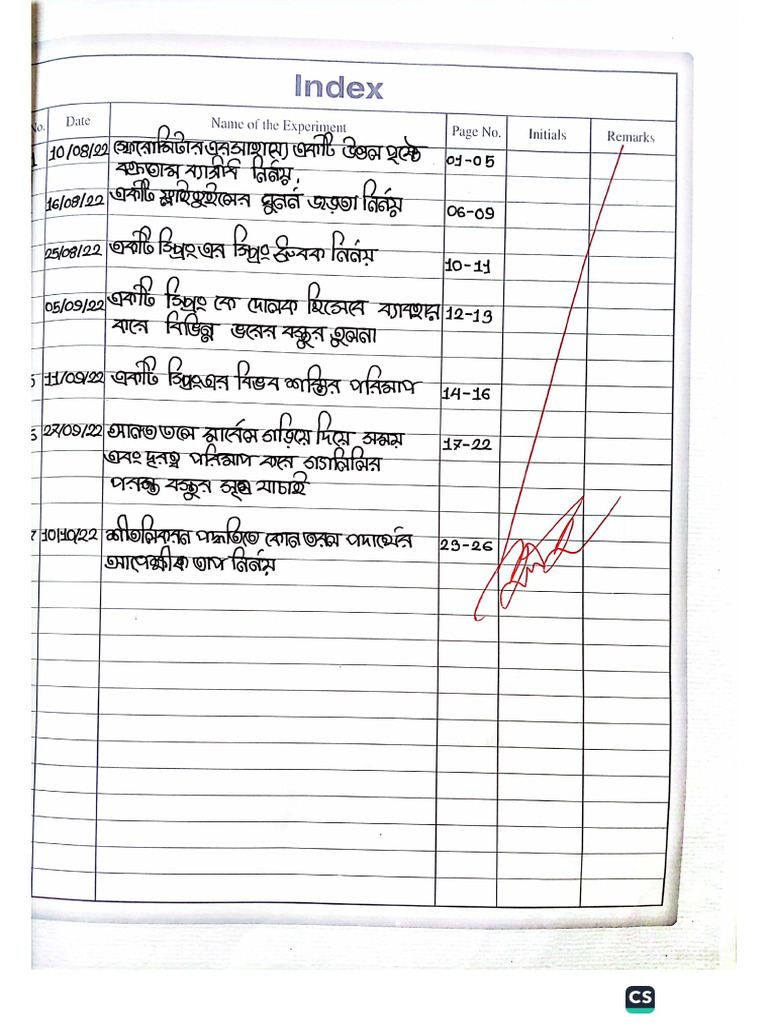 Index
No. Date Name of the Experiment Page No. Initials Remarks
1 10/08/22 স্ফেরোমিটার এর সাহায্যে একটি উত্তল পৃষ্ঠে 01-05
বক্রতার ব্যাসার্ধ নির্নয়.
16/08/22 একটি ফ্লাইহুইলের ঘুনর্ন জড়তা নির্নয় 06-09
25/08/22 একটি স্প্রিং এর স্প্রিং ধ্রুবক নির্নয় 10-11
05/09/22 একটি স্প্রিং কে দোলক হিসেবে ব্যাবহার 12-13
করে বিভিন্ন ভরের বস্তুর তুলনা
5 11/09/22 একটি স্প্রিং এর বিভব শক্তির পরিমাপ 14-16
22/09/22 আনত তলে মার্বেল গড়িয়ে দিয়ে সময় 17-22
এবং দুরত্ব পরিমাপ করে গ্যালিলির
পরন্ত বস্তুর সূত্র যাচাই
7 10/10/22 শীতলিকরন পদ্ধতিতে কোন তরল পদার্থের 23-26
আপেক্ষীক তাপ নির্নয়
CS